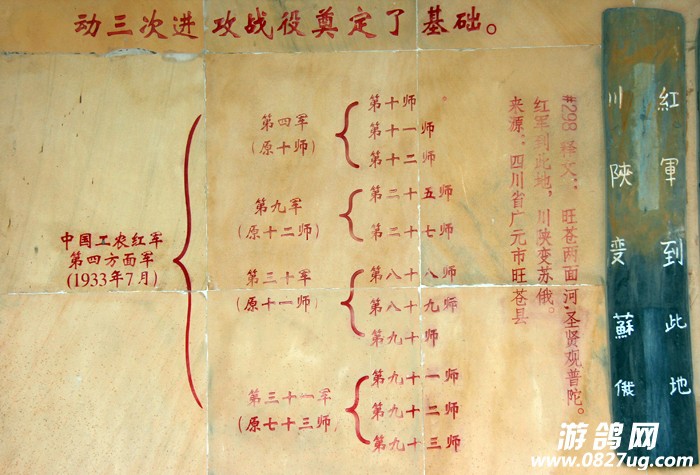 动三次进攻战役奠定了基础。
中国工农红军
第四方面军
(1933年7月)
第四军
(原十师)
第十师
第十一师
第十二师
第九军
(原十二师)
第二十五师
第二十七师
第三十军
(原十一师)
第八十八师
第八十九师
第九十师
第三十一军
(原七十三师)
第九十一师
第九十二师
第九十三师
#298 释文：旺苍两面河·圣贤观普陀。
红军到此地，川陕变苏俄。
来源：四川省广元市旺苍县
紅軍到此地
川陝变蘇俄
游鸽网
www.0827ug.com